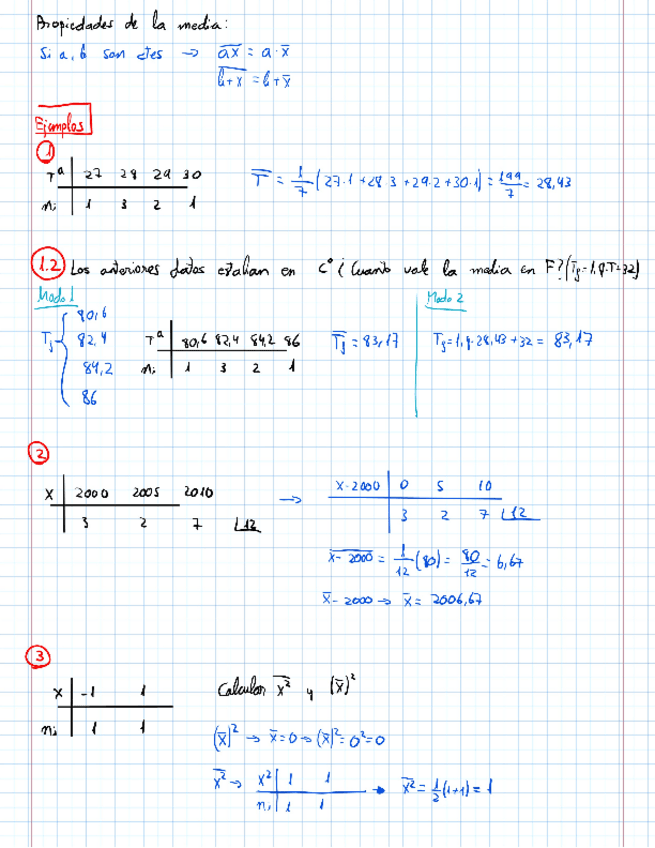 Propiedades de la media:
Si a, b son ctes → ax̄ = a · x̄
b+x = b + x̄
Ejemplos
1
Tª | 27 28 29 30
nᵢ | 1 3 2 1
T̄ = 1/7 (27·1 + 28·3 + 29·2 + 30·1) = 199/7 = 28,43
1.2 Los anteriores datos estaban en Cº ¿Cuanto vale la media en F? (Tf = 1,8·T+32)
Modo 1
Tf { 80,6 82,4 84,2 86
Tª | 80,6 82,4 84,2 86
nᵢ | 1 3 2 1
T̄f = 83,17
Modo 2
Tf = 1,8·28,43 + 32 = 83,17
2
x | 2000 2005 2010
3 2 7 12
→
x-2000 | 0 5 10
3 2 7 12
x-2000 = 1/12 (80) = 80/12 = 6,67
x̄ - 2000 → x̄ = 2006,67
3
x | -1 1
nᵢ | 1 1
Calcular x² y (x̄)²
(x̄)² → x̄ = 0 → (x̄)² = 0² = 0
x² → x² | 1 1
nᵢ | 1 1
→ x² = 1/2 (1+1) = 1